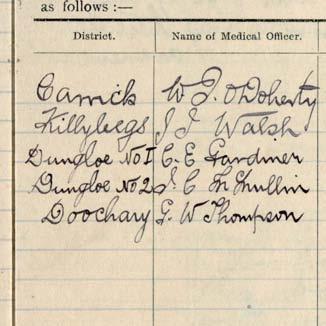 as follows :—
District. Name of Medical Officer.
Carrick W. J. O'Doherty
Killybegs J J Walsh
Dungloe No I C. E Gardiner
Dungloe No 2 J. C McMullin
Doochary G. W Thompson